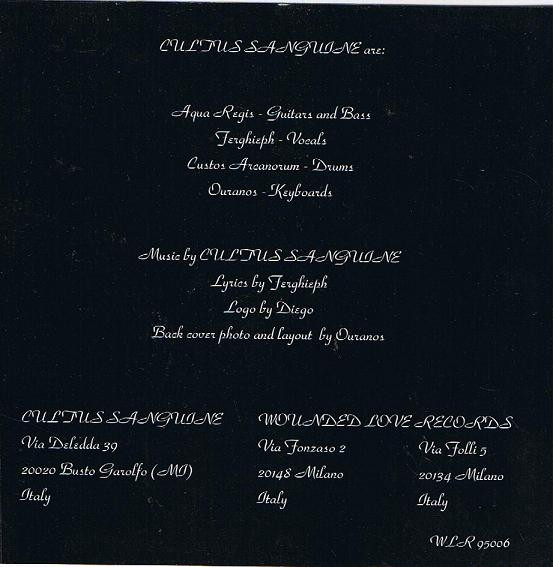 CULTUS SANGUINE are:
Aqua Regis - Guitars and Bass
Jerghieph - Vocals
Custos Arcanorum - Drums
Ouranos - Keyboards
Music by CULTUS SANGUINE
Lyrics by Jerghieph
Logo by Diego
Back cover photo and layout by Ouranos
CULTUS SANGUINE
Via Deledda 39
20020 Busto Garolfo (MI)
Italy
WOUNDED LOVE RECORDS
Via Fonzaso 2
20148 Milano
Italy
Via Folli 5
20134 Milano
Italy
WLR 95006